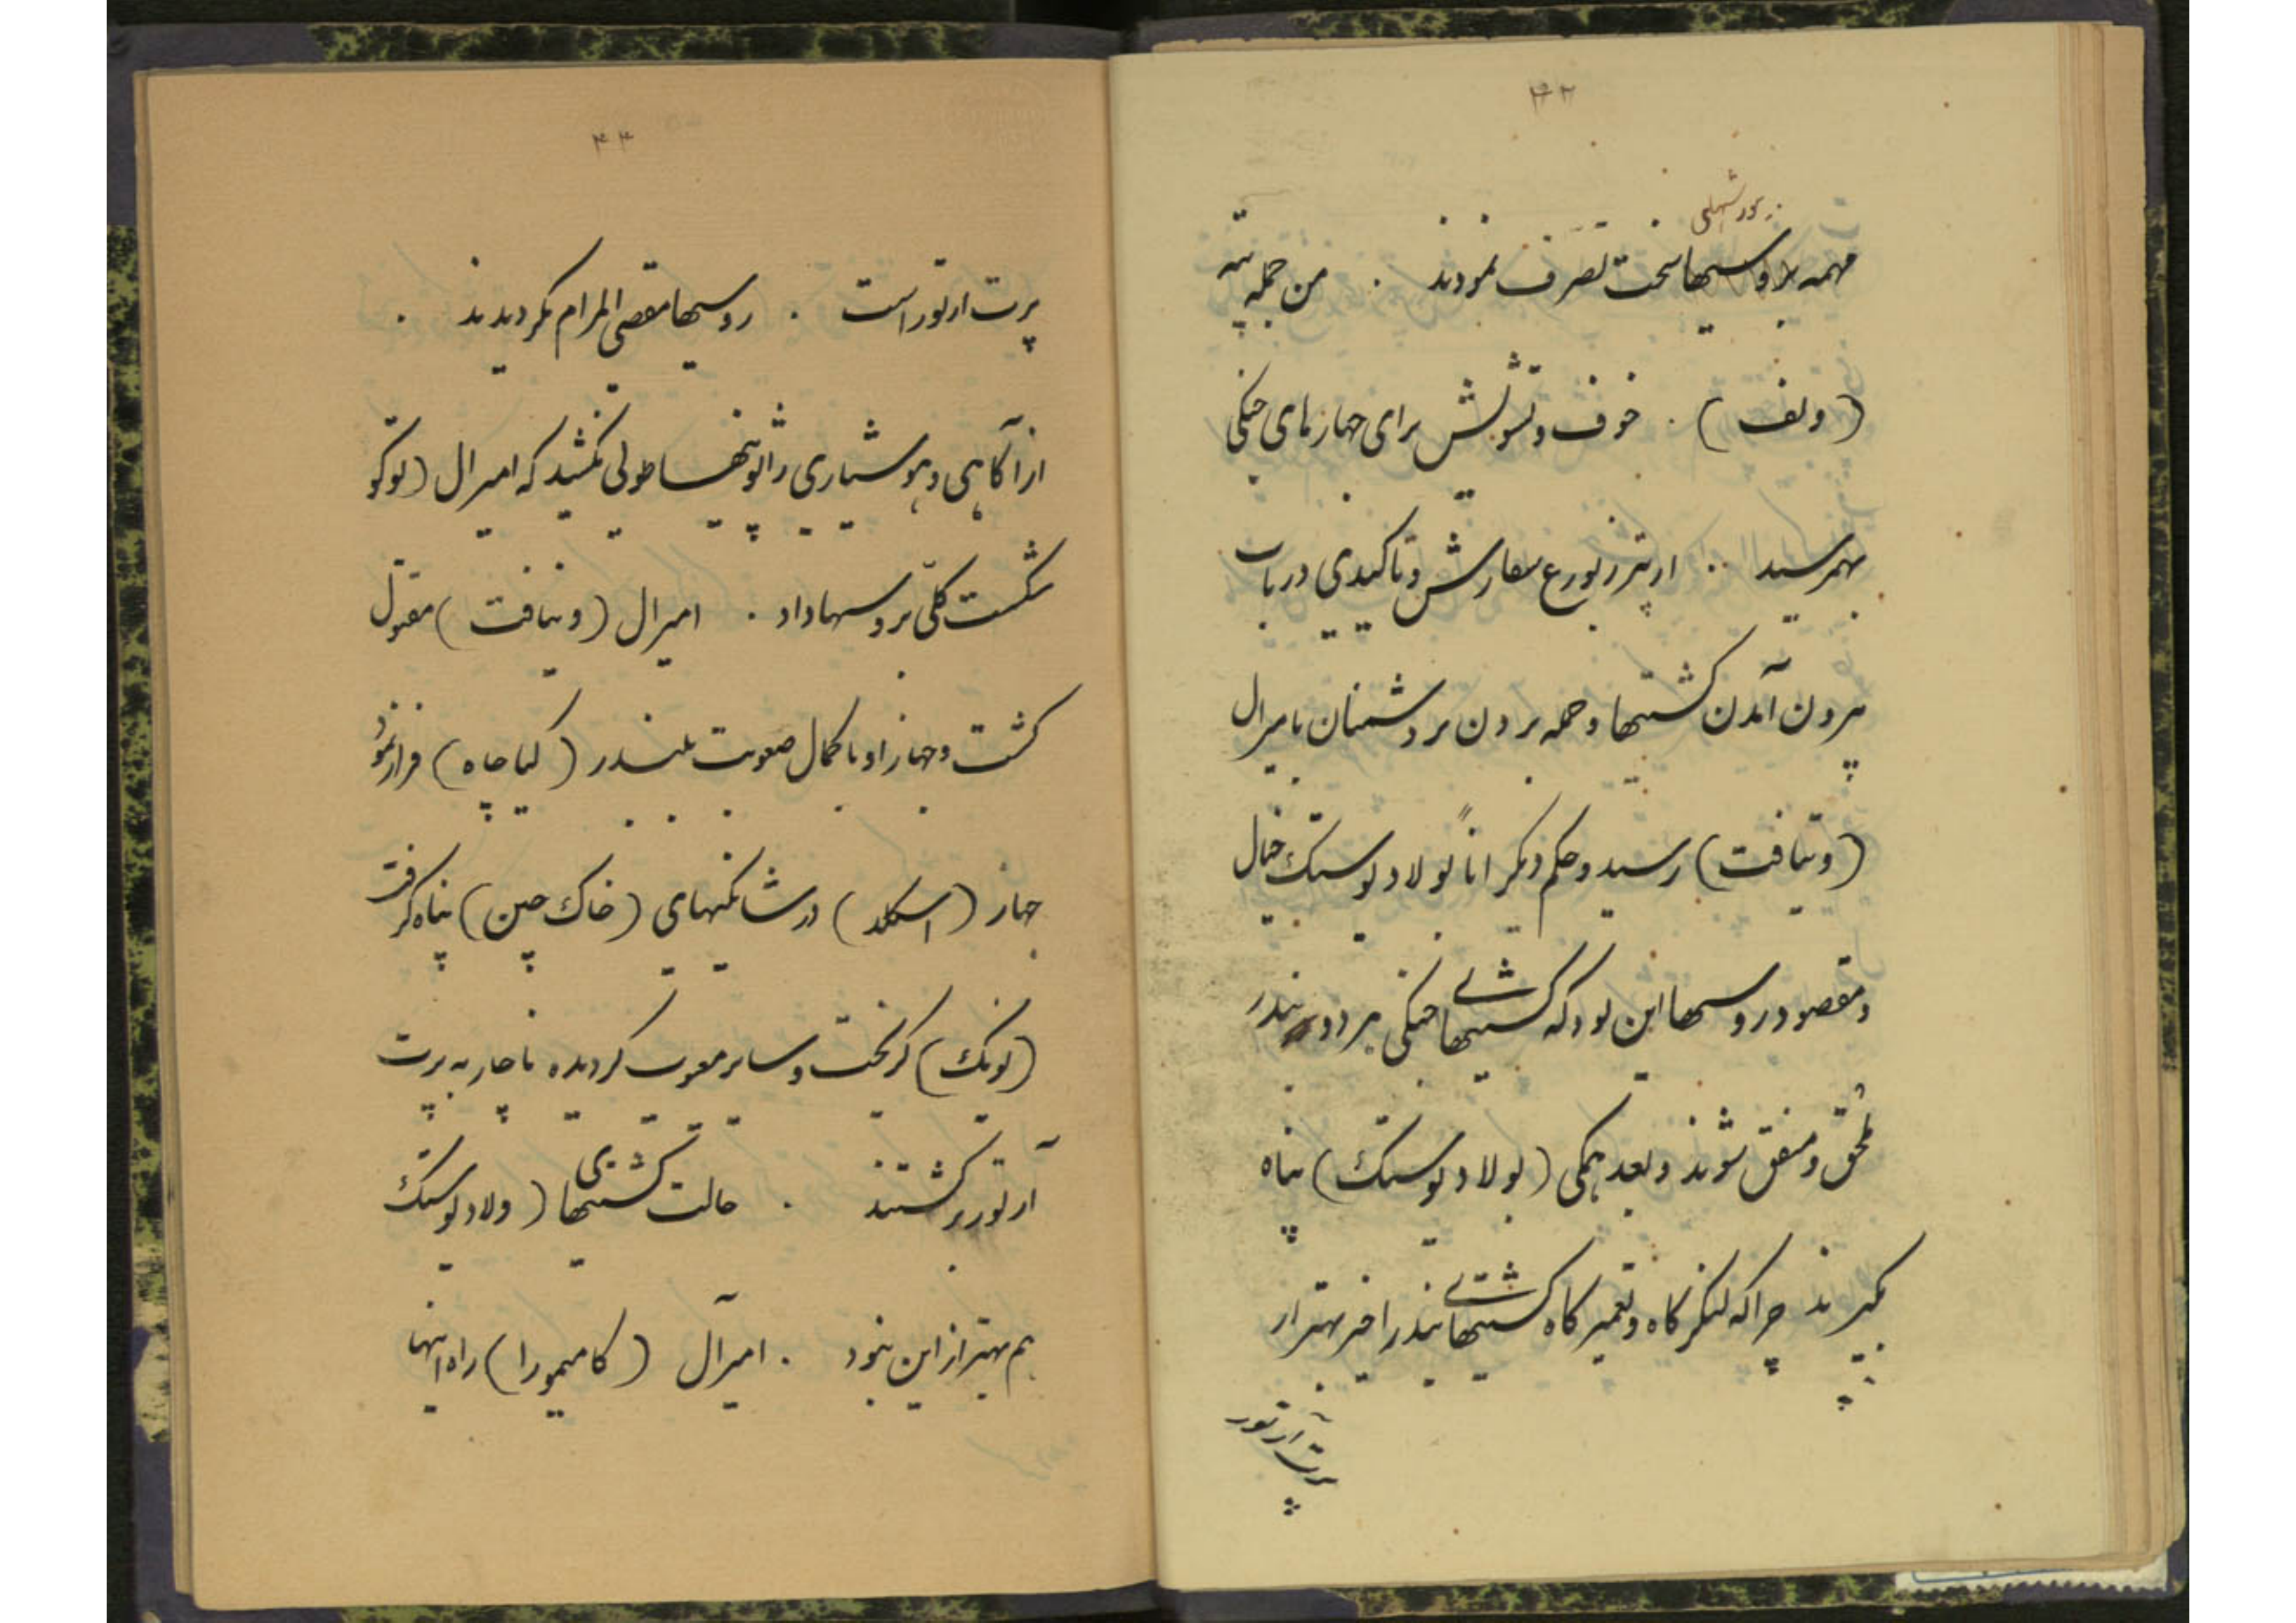 ۴۳
مهمه بر روسیها سخت تصرف نمودند . من جمله تپه
(ولف) . خوف و تشویش برای جهازهای جنگی
بهمرسید .. از پترزبورغ سفارش و تاکیدی در باب
بیرون آمدن کشتیها و حمله بردن بر دشمنان بامیرال
(ویتافت) رسید و حکم دیگر اناً بولادیوستک خیال
و مقصود روسها این بود که کشتیهای جنگی هر دو بندر
ملحق و متفق شوند و بعد همگی (بولادیوستک) پناه
بگیرند چرا که لنگرگاه و تعمیرگاه کشتیهای بندر اخیر بهتر از
پرت آرتور
۴۴
پرت ارتور است . روسیها مقضی المرام نگردیدند .
از آگاهی و هوشیاری ژاپونیها طولی نکشید که امیرال (توکو
شکست کلّی بروسها داد . امیرال (ویتافت) مقتول
گشت و جهاز او با کمال صعوبت ببندر (کیاچاه) فرار نمود
جهاز (اسکلد) در شانگهای (خاک چین) پناه گرفت
(نویک) گریخت و سایر معیوب گردیده ناچار به پرت
آرتور برگشتند . حالت کشتیهای (ولادیوستک
هم بهتر از این نبود . امیرآل (کامیمورا) راه اینها